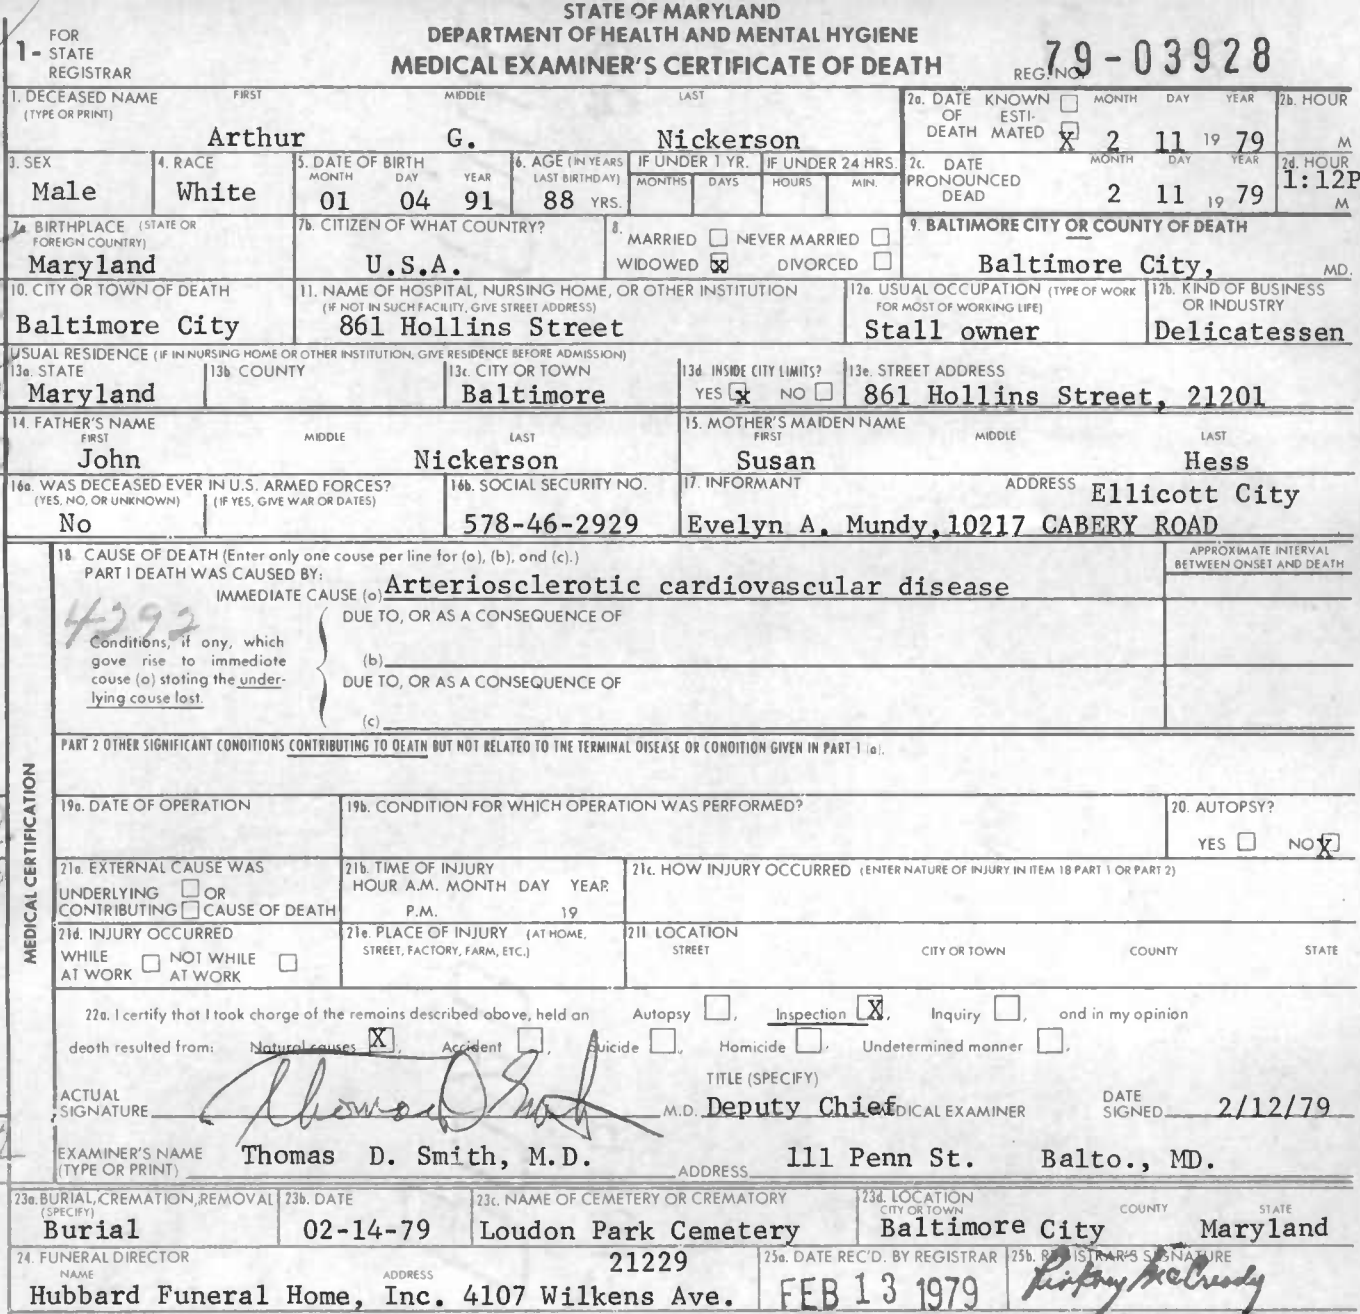 STATE OF MARYLAND
DEPARTMENT OF HEALTH AND MENTAL HYGIENE
MEDICAL EXAMINER'S CERTIFICATE OF DEATH
1- FOR STATE REGISTRAR
REG. NO. 79-03928
1. DECEASED NAME (TYPE OR PRINT) FIRST MIDDLE LAST
Arthur G. Nickerson
2a. DATE OF DEATH KNOWN ESTI-MATED X MONTH DAY YEAR 2 11 19 79
2b. HOUR M
3. SEX Male
4. RACE White
5. DATE OF BIRTH MONTH DAY YEAR 01 04 91
6. AGE (IN YEARS LAST BIRTHDAY) 88 YRS.
IF UNDER 1 YR. MONTHS DAYS
IF UNDER 24 HRS. HOURS MIN.
2c. DATE PRONOUNCED DEAD MONTH DAY YEAR 2 11 19 79
2d. HOUR 1:12P M
7a. BIRTHPLACE (STATE OR FOREIGN COUNTRY) Maryland
7b. CITIZEN OF WHAT COUNTRY? U.S.A.
8. MARRIED NEVER MARRIED
WIDOWED X DIVORCED
9. BALTIMORE CITY OR COUNTY OF DEATH
Baltimore City, MD.
10. CITY OR TOWN OF DEATH Baltimore City
11. NAME OF HOSPITAL, NURSING HOME, OR OTHER INSTITUTION
(IF NOT IN SUCH FACILITY, GIVE STREET ADDRESS)
861 Hollins Street
12a. USUAL OCCUPATION (TYPE OF WORK FOR MOST OF WORKING LIFE) Stall owner
12b. KIND OF BUSINESS OR INDUSTRY Delicatessen
USUAL RESIDENCE (IF IN NURSING HOME OR OTHER INSTITUTION, GIVE RESIDENCE BEFORE ADMISSION)
13a. STATE Maryland
13b. COUNTY
13c. CITY OR TOWN Baltimore
13d. INSIDE CITY LIMITS? YES X NO
13e. STREET ADDRESS 861 Hollins Street, 21201
14. FATHER'S NAME FIRST MIDDLE LAST
John Nickerson
15. MOTHER'S MAIDEN NAME FIRST MIDDLE LAST
Susan Hess
16a. WAS DECEASED EVER IN U.S. ARMED FORCES?
(YES, NO, OR UNKNOWN) (IF YES, GIVE WAR OR DATES)
No
16b. SOCIAL SECURITY NO. 578-46-2929
17. INFORMANT ADDRESS Ellicott City
Evelyn A. Mundy, 10217 CABERY ROAD
MEDICAL CERTIFICATION
18. CAUSE OF DEATH (Enter only one cause per line for (a), (b), and (c).)
PART I DEATH WAS CAUSED BY:
IMMEDIATE CAUSE (a) Arteriosclerotic cardiovascular disease
APPROXIMATE INTERVAL BETWEEN ONSET AND DEATH
4292
Conditions, if any, which
gave rise to immediate
cause (a) stating the under-
lying cause last.
DUE TO, OR AS A CONSEQUENCE OF
(b)
DUE TO, OR AS A CONSEQUENCE OF
(c)
PART 2 OTHER SIGNIFICANT CONDITIONS CONTRIBUTING TO DEATH BUT NOT RELATED TO THE TERMINAL DISEASE OR CONDITION GIVEN IN PART 1 (a).
19a. DATE OF OPERATION
19b. CONDITION FOR WHICH OPERATION WAS PERFORMED?
20. AUTOPSY?
YES NO X
21a. EXTERNAL CAUSE WAS
UNDERLYING OR
CONTRIBUTING CAUSE OF DEATH
21b. TIME OF INJURY
HOUR A.M. MONTH DAY YEAR
P.M. 19
21c. HOW INJURY OCCURRED (ENTER NATURE OF INJURY IN ITEM 18 PART 1 OR PART 2)
21d. INJURY OCCURRED
WHILE AT WORK NOT WHILE AT WORK
21e. PLACE OF INJURY (AT HOME, STREET, FACTORY, FARM, ETC.)
21f. LOCATION
STREET CITY OR TOWN COUNTY STATE
22a. I certify that I took charge of the remains described above, held an Autopsy , Inspection X , Inquiry , and in my opinion
death resulted from: Natural causes X , Accident , Suicide , Homicide , Undetermined manner .
ACTUAL SIGNATURE Thomas D Smith M.D.
TITLE (SPECIFY) Deputy Chief MEDICAL EXAMINER
DATE SIGNED 2/12/79
EXAMINER'S NAME (TYPE OR PRINT) Thomas D. Smith, M.D.
ADDRESS 111 Penn St. Balto., MD.
23a. BURIAL, CREMATION, REMOVAL (SPECIFY) Burial
23b. DATE 02-14-79
23c. NAME OF CEMETERY OR CREMATORY Loudon Park Cemetery
23d. LOCATION CITY OR TOWN COUNTY STATE
Baltimore City Maryland
24. FUNERAL DIRECTOR 21229
NAME ADDRESS
Hubbard Funeral Home, Inc. 4107 Wilkens Ave.
25a. DATE REC'D. BY REGISTRAR FEB 13 1979
25b. REGISTRAR'S SIGNATURE
McCready